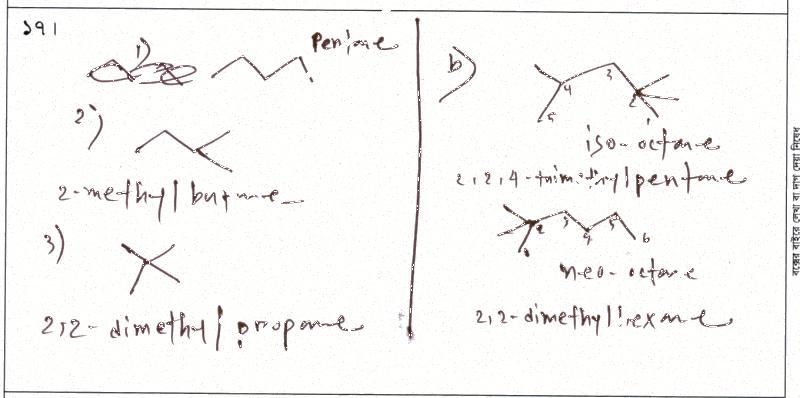 ১৭।
1) Pentane
2) 2-methyl butane
3) 2,2-dimethyl propane
b)
5 4 3 2 1
iso-octane
2,2,4-trimethyl pentane
1 2 3 4 5 6
neo-octane
2,2-dimethyl hexane
বক্সের বাইরে লেখা বা দাগ দেয়া নিষেধ